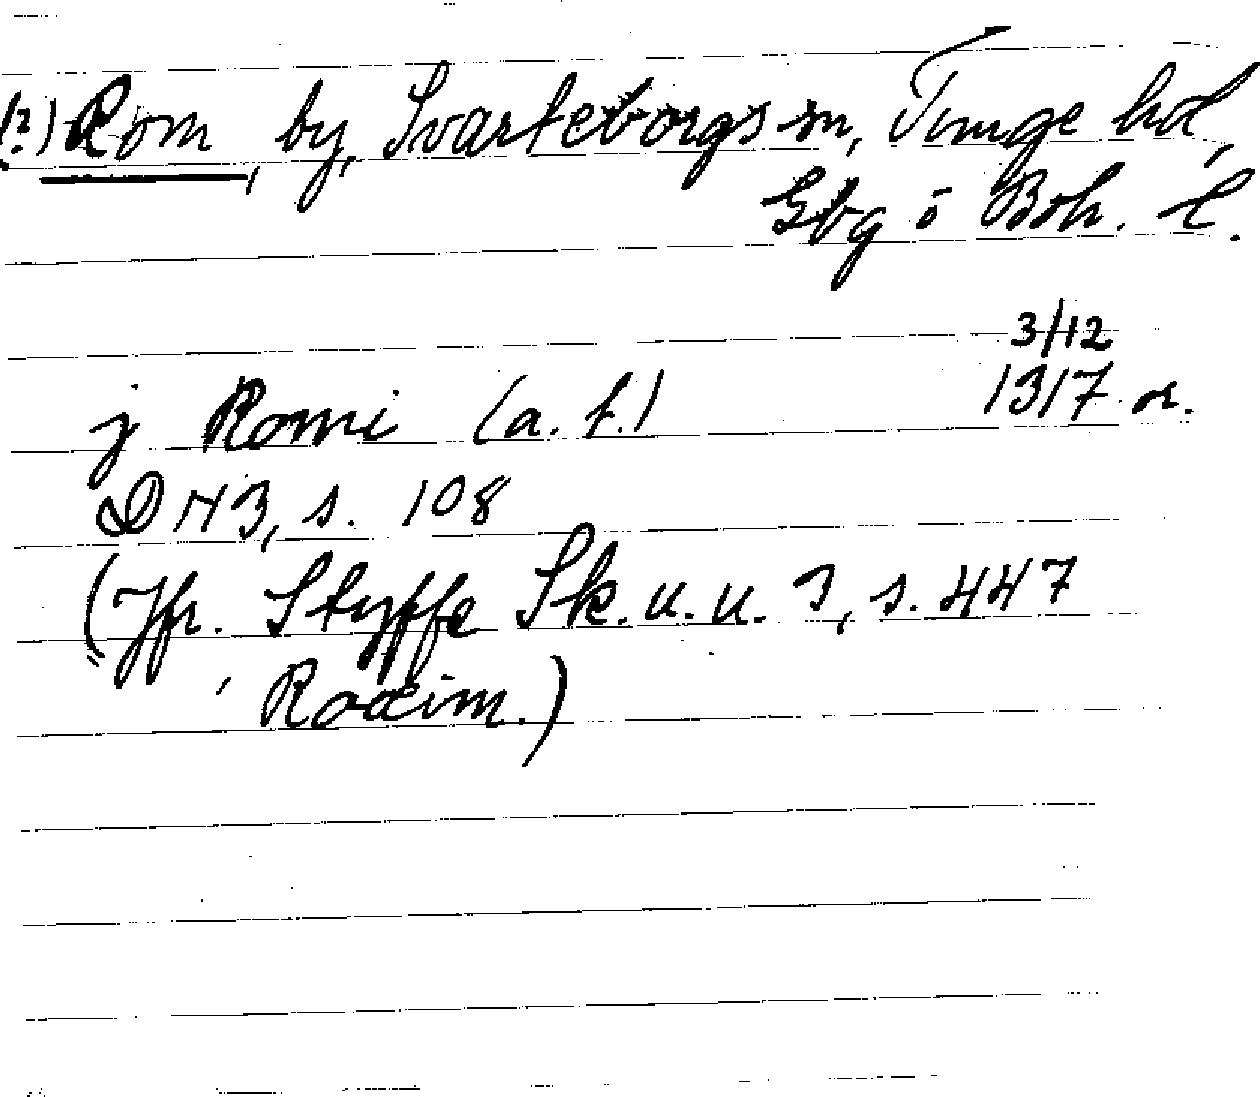 (?) Rom, by, Svarteborgs sn, Tunge hd,
Gbg o Boh. l.
3/12
j Romi (a. f.) 1317 or.
DN 3, s. 108
(Jfr. Styffe Sk. u. u. 3, s. 447
Roæim.)